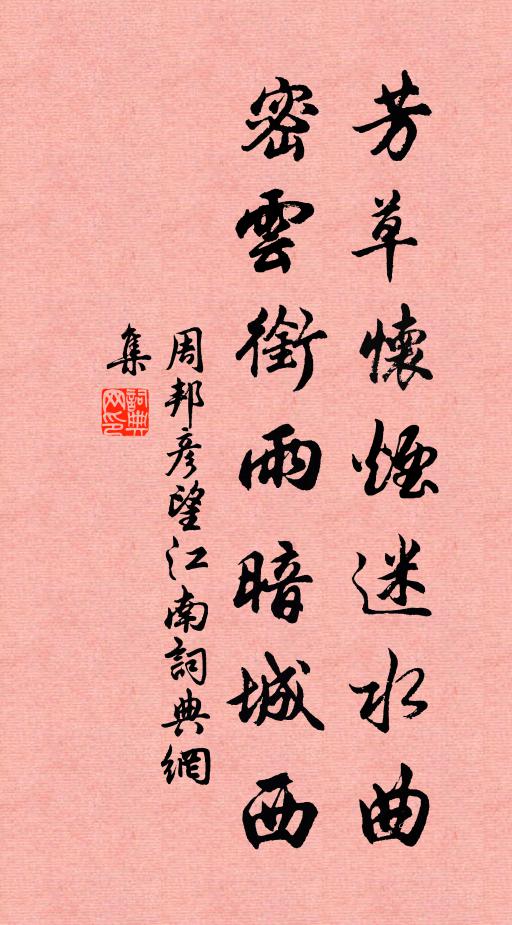 芳草懷煙迷水曲
密雲銜雨暗城西
周邦彥望江南詞典網
集
詞典網印